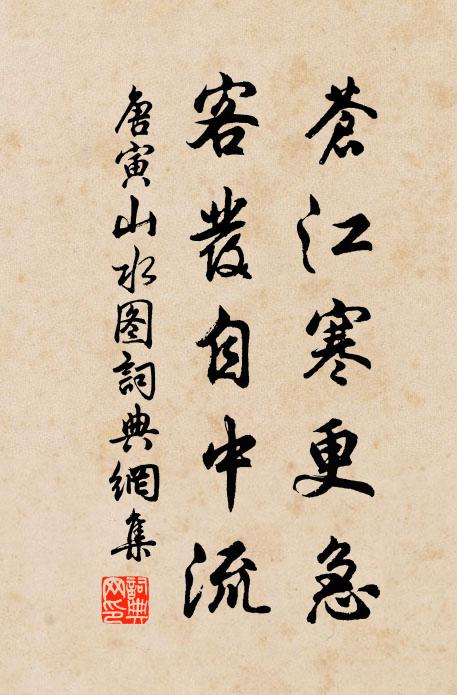 蒼江寒更急
客發自中流
唐寅山水图詞典網集
詞典网印